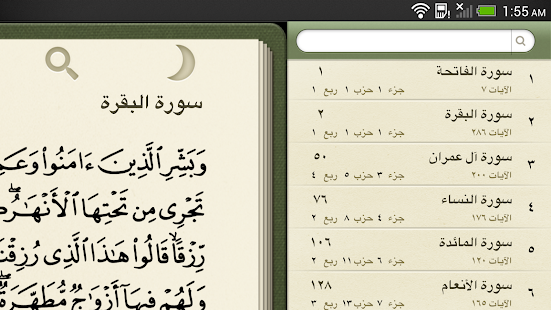 1:55 AM
سورة البقرة
وَبَشِّرِ ٱلَّذِينَ ءَامَنُوا۟ وَعَمِ
تَجْرِى مِن تَحْتِهَا ٱلْأَنْهَٰرُ ۖ
رِّزْقًا ۙ قَالُوا۟ هَٰذَا ٱلَّذِى رُزِقْنَا
وَلَهُمْ فِيهَآ أَزْوَٰجٌ مُّطَهَّرَةٌ ۖ
١ سورة الفاتحة ١
الآيات ٧ جزء ١ حزب ١ ربع ١
٢ سورة البقرة ٢
الآيات ٢٨٦ جزء ١ حزب ١ ربع ١
٣ سورة آل عمران ٥٠
الآيات ٢٠٠ جزء ٣ حزب ٥ ربع ٤
٤ سورة النساء ٧٦
الآيات ١٧٦ جزء ٤ حزب ٨ ربع ٢
٥ سورة المائدة ١٠٦
الآيات ١٢٠ جزء ٦ حزب ١١ ربع ٢
٦ سورة الأنعام ١٢٨
الآيات ١٦٥ جزء ٧ حزب ١٣ ربع ٣